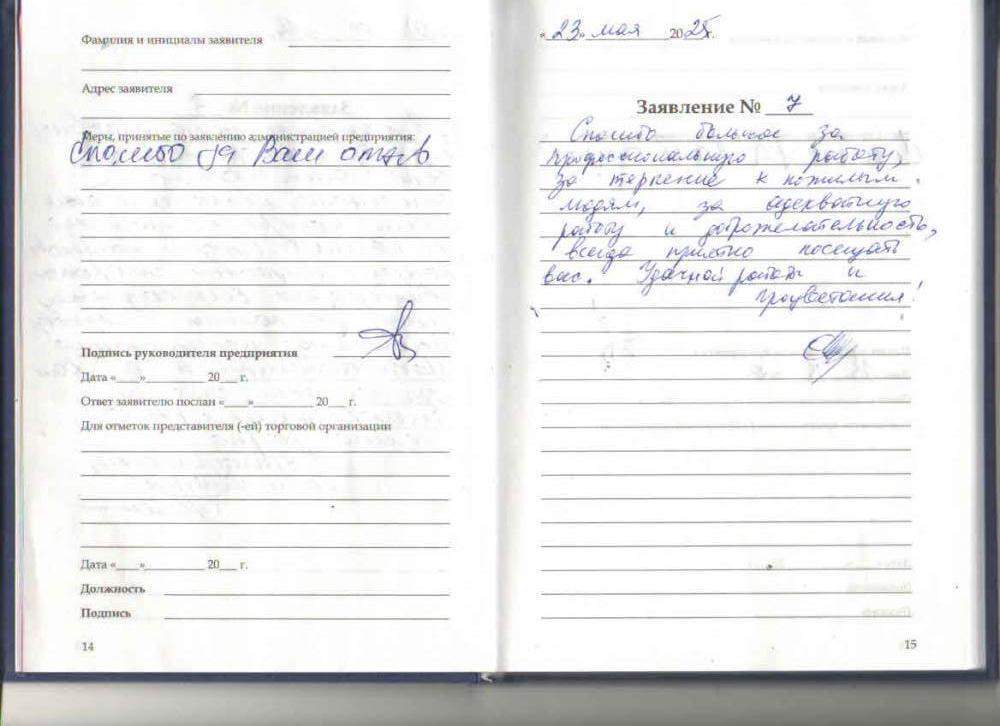 Фамилия и инициалы заявителя
Адрес заявителя
Меры, принятые по заявлению администрацией предприятия:
Спасибо за Ваш отзыв
Подпись руководителя предприятия
Дата «___»__________ 20___ г.
Ответ заявителю послан «____»__________ 20___ г.
Для отметок представителя (-ей) торговой организации
Дата «___»__________ 20___ г.
Должность
Подпись
14
«23» мая 2025г.
Заявление № 7
Спасибо большое за
профессиональную работу,
за терпение к пожилым
людям, за адекватную
работу и доброжелательность,
всегда приятно посещать
вас. Удачной работы и
процветания!
15